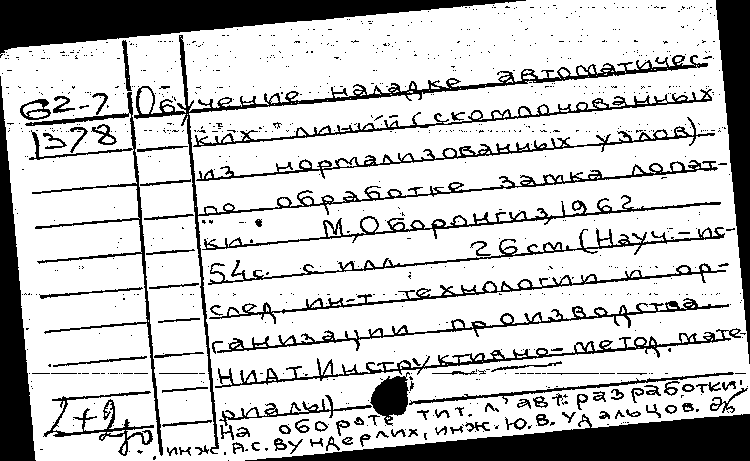 62-7 Обучение наладке автоматичес-
1378 ких линий (скомпонованных
из нормализованных узлов)
по обработке замка лопат-
ки. М., Оборонгиз, 1962.
54с. с илл. 26см. (Науч.-ис-
след. ин-т технологии и ор-
ганизации производства.
НИАТ. Инструктивно-метод. мате
риалы)
На обороте тит. л. авт. разработки:
инж. А.С. Вундерлих, инж. Ю.В. Удальцов.